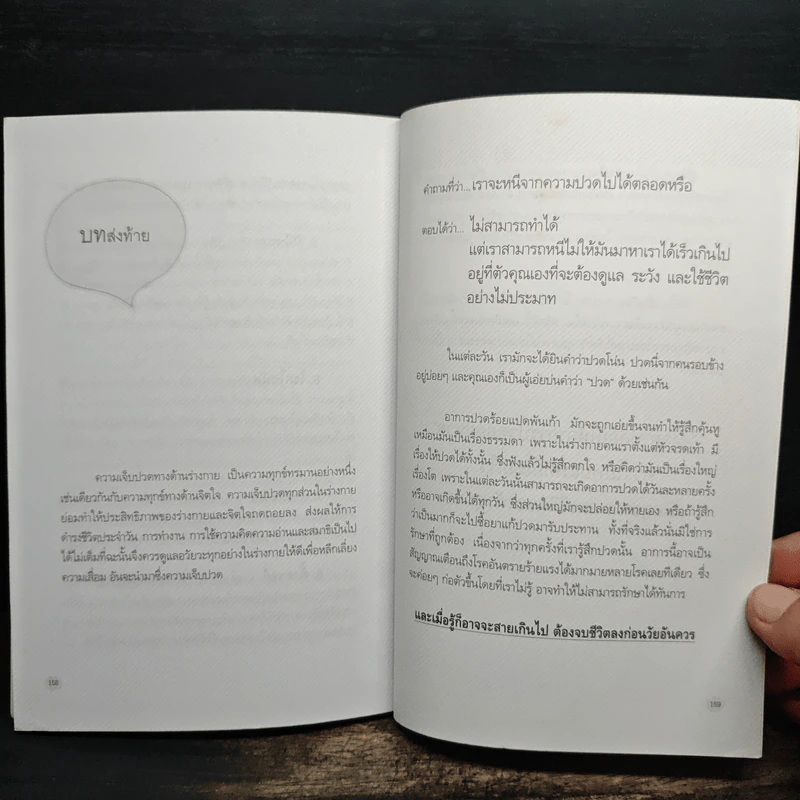 บทส่งท้าย
ความเจ็บปวดทางด้านร่างกาย เป็นความทุกข์ทรมานอย่างหนึ่ง
เช่นเดียวกันกับความทุกข์ทางด้านจิตใจ ความเจ็บปวดทุกส่วนในร่างกาย
ย่อมทำให้ประสิทธิภาพของร่างกายและจิตใจถดถอยลง ส่งผลให้การ
ดำรงชีวิตประจำวัน การทำงาน การใช้ความคิดความอ่านและสมาธิเป็นไป
ได้ไม่เต็มที่ฉะนั้นจึงควรดูแลอวัยวะทุกอย่างในร่างกายให้ดีเพื่อหลีกเลี่ยง
ความเสื่อม อันจะนำมาซึ่งความเจ็บปวด
158
คำถามที่ว่า... เราจะหนีจากความปวดไปได้ตลอดหรือ
ตอบได้ว่า... ไม่สามารถทำได้
แต่เราสามารถหนีไม่ให้มันมาหาเราได้เร็วเกินไป
อยู่ที่ตัวคุณเองที่จะต้องดูแล ระวัง และใช้ชีวิต
อย่างไม่ประมาท
ในแต่ละวัน เรามักจะได้ยินคำว่าปวดโน่น ปวดนี่จากคนรอบข้าง
อยู่บ่อยๆ และคุณเองก็เป็นผู้เอ่ยบ่นคำว่า "ปวด" ด้วยเช่นกัน
อาการปวดร้อยแปดพันเก้า มักจะถูกเอ่ยขึ้นจนทำให้รู้สึกคุ้นหู
เหมือนมันเป็นเรื่องธรรมดา เพราะในร่างกายคนเราตั้งแต่หัวจรดเท้า มี
เรื่องให้ปวดได้ทั้งนั้น ซึ่งฟังแล้วไม่รู้สึกตกใจ หรือคิดว่ามันเป็นเรื่องใหญ่
เรื่องโต เพราะในแต่ละวันนั้นสามารถจะเกิดอาการปวดได้วันละหลายครั้ง
หรืออาจเกิดขึ้นได้ทุกวัน ซึ่งส่วนใหญ่มักจะปล่อยให้หายเอง หรือถ้ารู้สึก
ว่าเป็นมากก็จะไปซื้อยาแก้ปวดมารับประทาน ทั้งที่จริงแล้วนั่นมิใช่การ
รักษาที่ถูกต้อง เนื่องจากว่าทุกครั้งที่เรารู้สึกปวดนั้น อาการนี้อาจเป็น
สัญญาณเตือนถึงโรคอันตรายร้ายแรงได้มากมายหลายโรคเลยทีเดียว ซึ่ง
จะค่อยๆ ก่อตัวขึ้นโดยที่เราไม่รู้ อาจทำให้ไม่สามารถรักษาได้ทันการ
และเมื่อรู้ก็อาจจะสายเกินไป ต้องจบชีวิตลงก่อนวัยอันควร
159